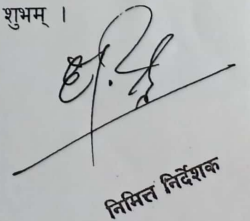 शुभम् ।
निमित्त निर्देशक